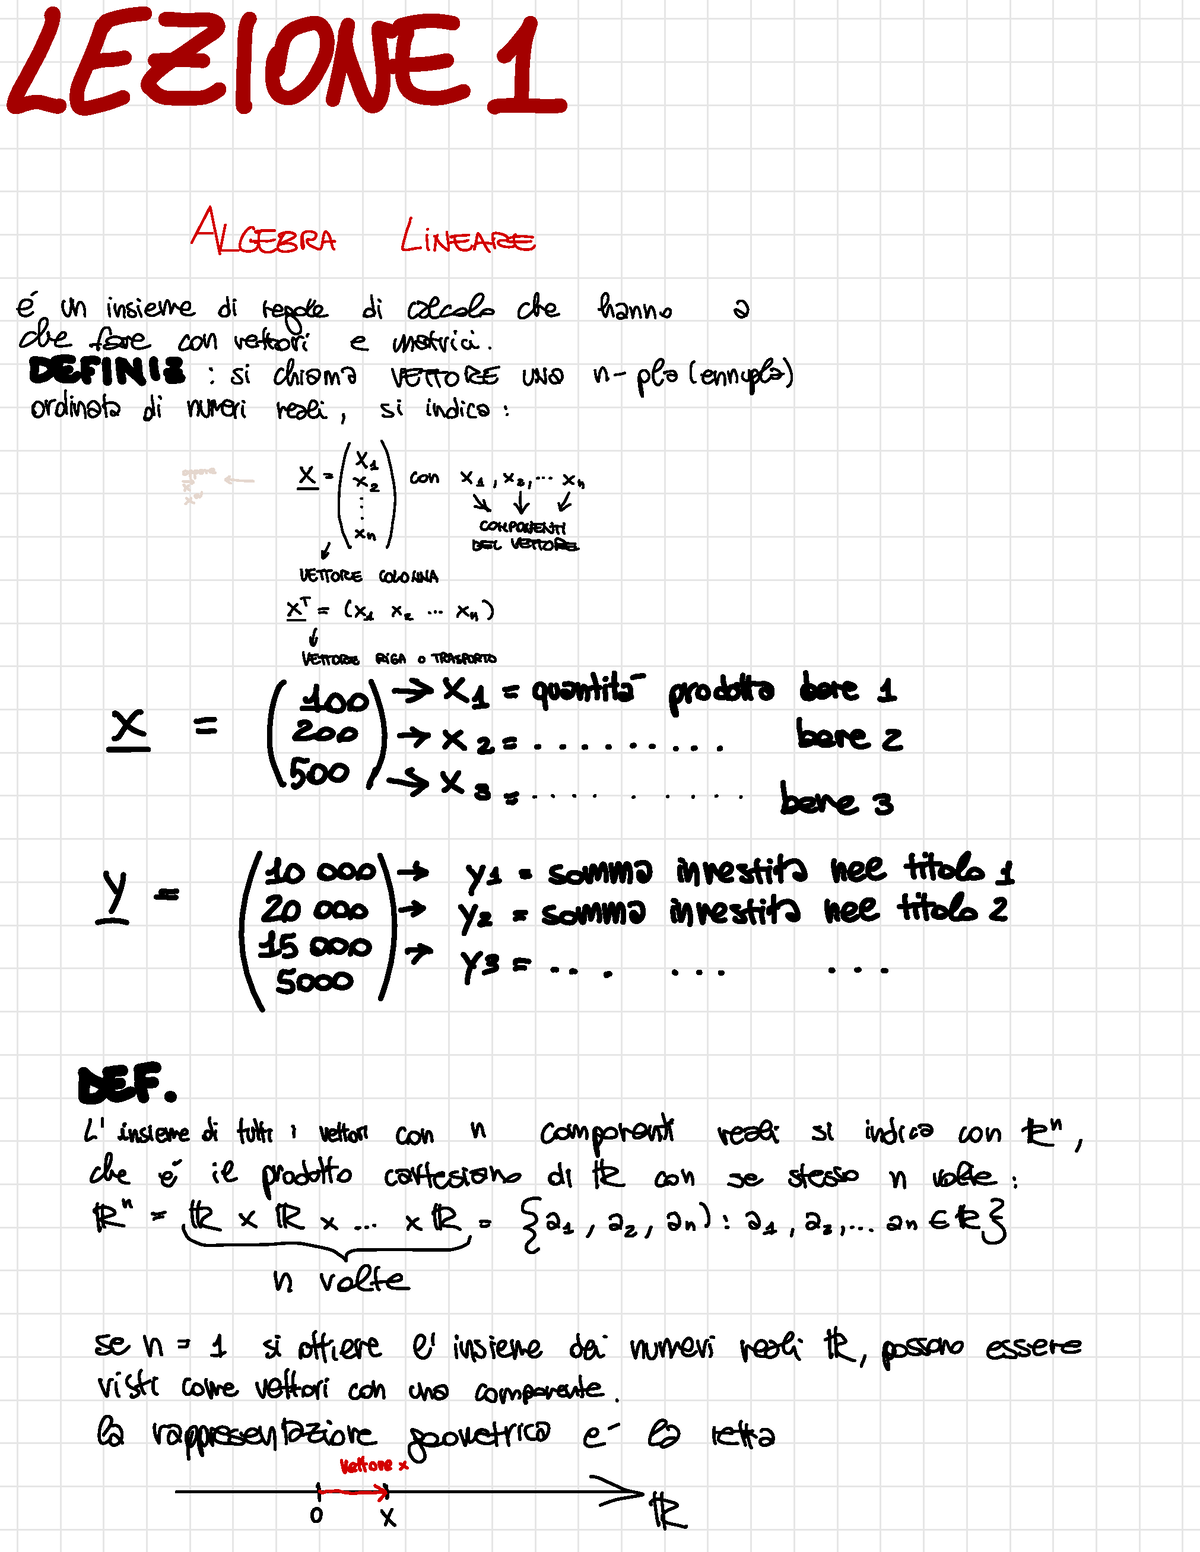 LEZIONE 1
ALGEBRA LINEARE
é un insieme di regole di calcolo che hanno a
che fare con vettori e matrici.
DEFINIZ : si chiama VETTORE una n-pla (ennupla)
ordinata di numeri reali, si indica:
oppure ←
X = (x1 x2 ⋮ xn) con x1, x2, ... xn
COMPONENTI
DEL VETTORE
VETTORE COLONNA
X^T = (x1 x2 ... xn)
VETTORE RIGA O TRASPORTO
X = (100 200 500)
→ X1 = quantità prodotta bene 1
→ X2 = ......... bene 2
→ X3 = ......... bene 3
Y = (10 000 20 000 15 000 5000)
→ Y1 = somma investita nel titolo 1
→ Y2 = somma investita nel titolo 2
→ Y3 = ... ... ...
DEF.
L'insieme di tutti i vettori con n componenti reali si indica con ℝ^n,
che é il prodotto cartesiano di ℝ con se stesso n volte:
ℝ^n = ℝ x ℝ x ... x ℝ = {a1, a2, an) : a1, a2, ... an ∈ ℝ}
n volte
se n = 1 si ottiene l'insieme dei numeri reali ℝ, possono essere
visti come vettori con una componente.
la rappresentazione geometrica é la retta
Vettore x
0 X ℝ